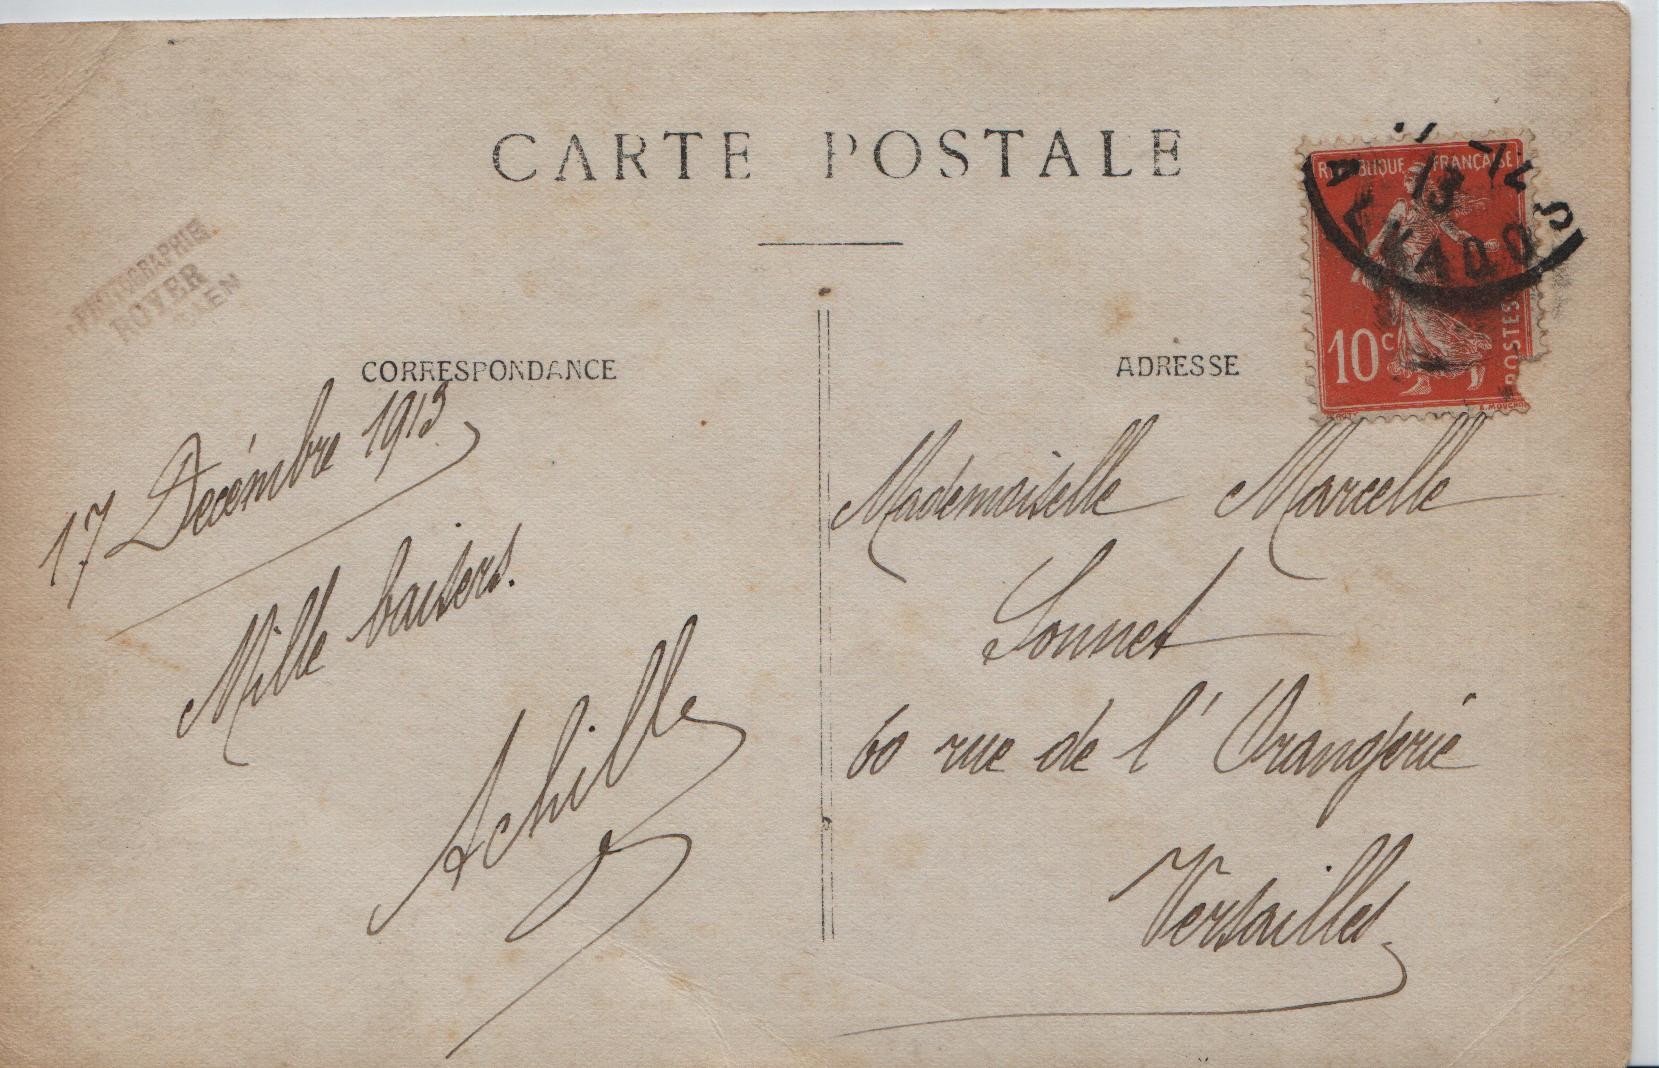 CARTE POSTALE
PHOTOGRAPHIE
ROYER
CAEN
CORRESPONDANCE
17 Decémbre 1913
Mille baisers.
Achille
ADRESSE
REPUBLIQUE FRANÇAISE
10c
POSTES
13
Mademoiselle Marcelle
Sonnet
60 rue de l'Orangerie
Versailles